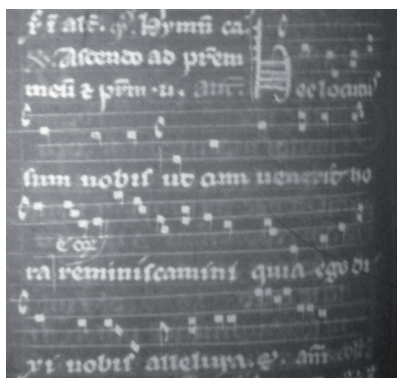 Hymn̄ ca
Ascendo ad pr̄em
meū ⁊ pr̄m .u. an̄. Hec locutus
sum uobis ut cum uenerit ho
ra reminiscamini quia ego di
xi uobis alleluya. an̄.